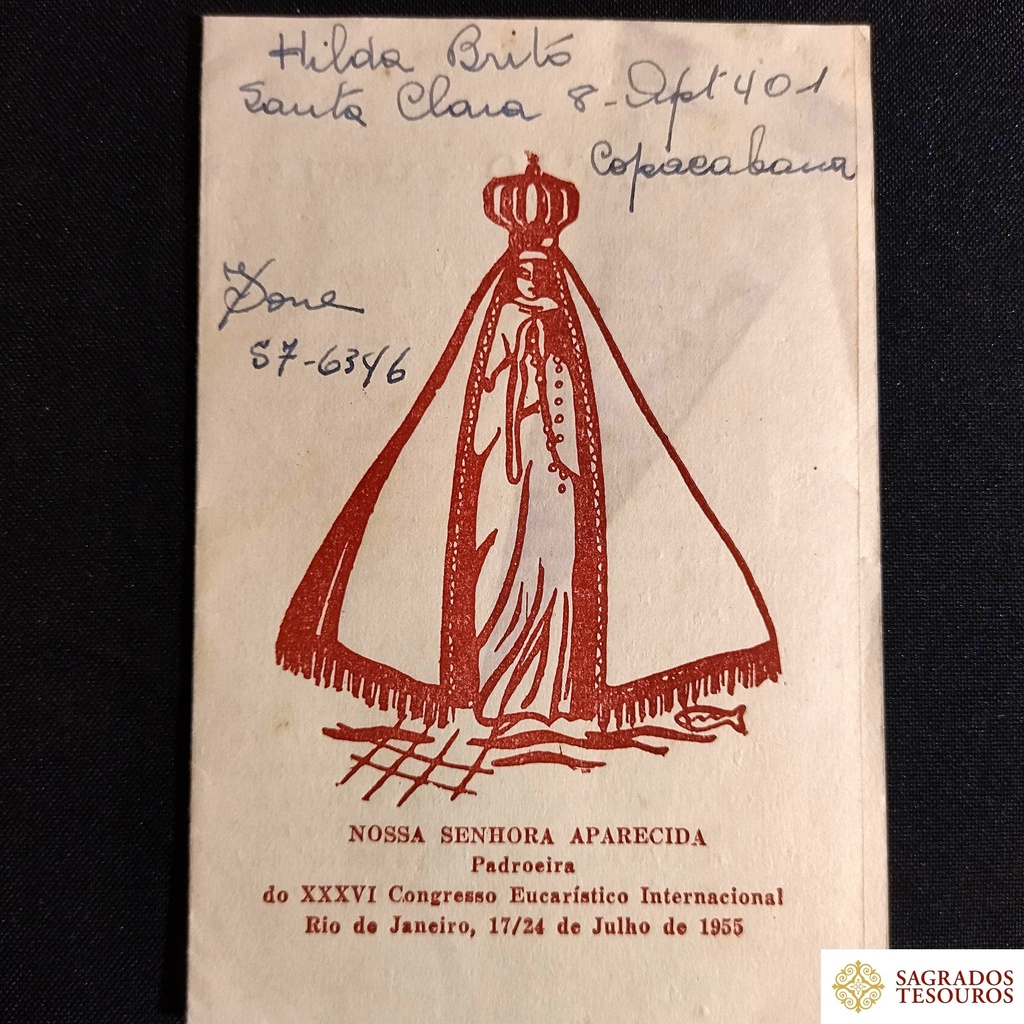 Hilda Brito
Santa Clara 8-Apt 401
Copacabana
Fone
57-6346
NOSSA SENHORA APARECIDA
Padroeira
do XXXVI Congresso Eucarístico Internacional
Rio de Janeiro, 17/24 de Julho de 1955
SAGRADOS
TESOUROS